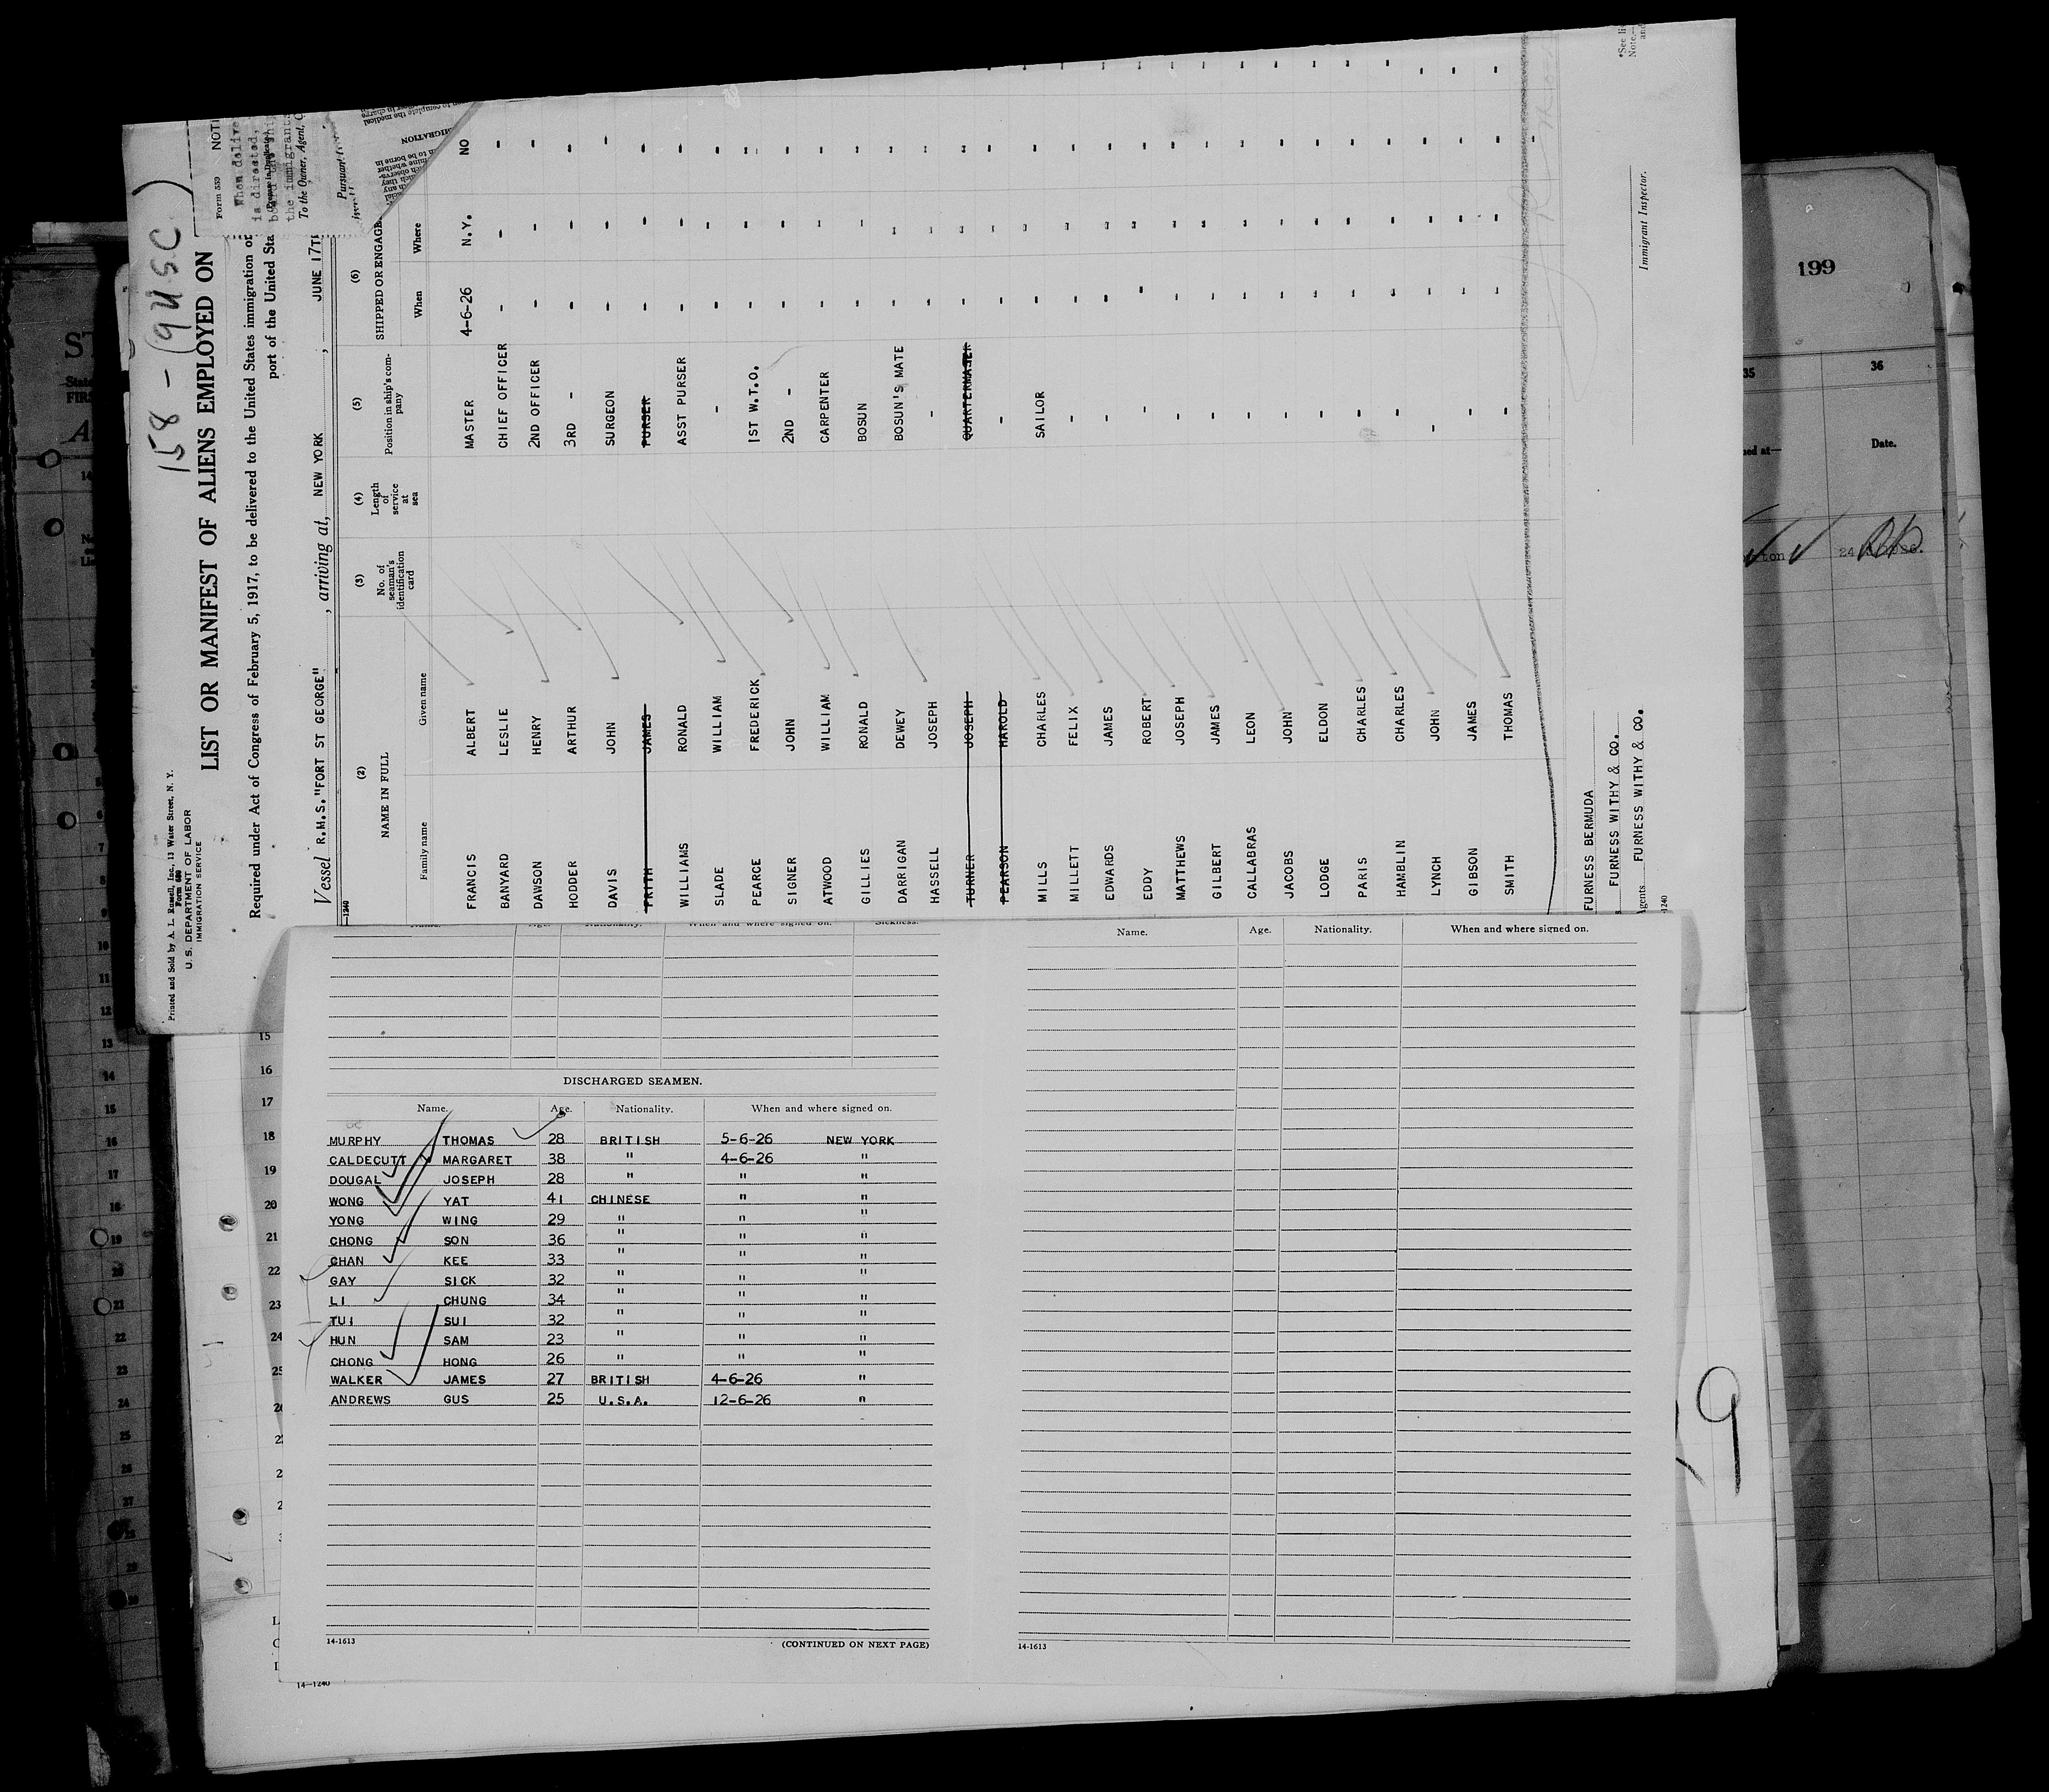 158 - (9 USC)
Printed and Sold by A. L. Russell, Inc., 13 Water Street, N. Y.
Form 680
U. S. DEPARTMENT OF LABOR
IMMIGRATION SERVICE
LIST OR MANIFEST OF ALIENS EMPLOYED ON
Required under Act of Congress of February 5, 1917, to be delivered to the United States immigration
port of the United Sta
Vessel R.M.S. "FORT ST GEORGE", arriving at, NEW YORK, JUNE 17T
Form 559 NOTI
When delive
is directed,
(Prepare in Duplicate)
the immigrants
To the Owner, Agent, C
Pursuant
(2) (3) (4) (5) (6)
NAME IN FULL No. of seaman's identification card Length of service at sea Position in ship's company SHIPPED OR ENGAGE
Family name Given name When Where
FRANCIS ALBERT MASTER 4-6-26 N.Y. NO
BANYARD LESLIE CHIEF OFFICER - - -
DAWSON HENRY 2ND OFFICER - - -
HODDER ARTHUR 3RD - - - -
DAVIS JOHN SURGEON - - -
FRITH JAMES PURSER - - -
WILLIAMS RONALD ASST PURSER - - -
SLADE WILLIAM - - - -
PEARCE FREDERICK 1ST W.T.O. - - -
SIGNER JOHN 2ND - - - -
ATWOOD WILLIAM CARPENTER - - -
GILLIES RONALD BOSUN - - -
DARRIGAN DEWEY BOSUN'S MATE - - -
HASSELL JOSEPH - - - -
TURNER JOSEPH QUARTERMASTER - - -
PEARSON HAROLD - - - -
MILLS CHARLES SAILOR - - -
MILLETT FELIX - - - -
EDWARDS JAMES - - - -
EDDY ROBERT - - - -
MATTHEWS JOSEPH - - - -
GILBERT JAMES - - - -
CALLABRAS LEON - - - -
JACOBS JOHN - - - -
LODGE ELDON - - - -
PARIS CHARLES - - - -
HAMBLIN CHARLES - - - -
LYNCH JOHN - - - -
GIBSON JAMES - - - -
SMITH THOMAS - - - -
FURNESS BERMUDA
FURNESS WITHY & CO.
Agents FURNESS WITHY & CO.
Immigrant Inspector.
*See li
Note.—
Name. Age. Nationality. When and where signed on. Sickness.
DISCHARGED SEAMEN.
Name. Age. Nationality. When and where signed on.
MURPHY THOMAS 28 BRITISH 5-6-26 NEW YORK
CALDECUTT MARGARET 38 " 4-6-26 "
DOUGAL JOSEPH 28 " " "
WONG YAT 41 CHINESE " "
YONG WING 29 " " "
CHONG SON 36 " " "
CHAN KEE 33 " " "
GAY SICK 32 " " "
LI CHUNG 34 " " "
TUI SUI 32 " " "
HUN SAM 23 " " "
CHONG HONG 26 " " "
WALKER JAMES 27 BRITISH 4-6-26 "
ANDREWS GUS 25 U.S.A. 12-6-26 "
14-1613 (CONTINUED ON NEXT PAGE)
Name. Age. Nationality. When and where signed on.
14-1613
14—1240
199
35 36
ned at— Date.
9